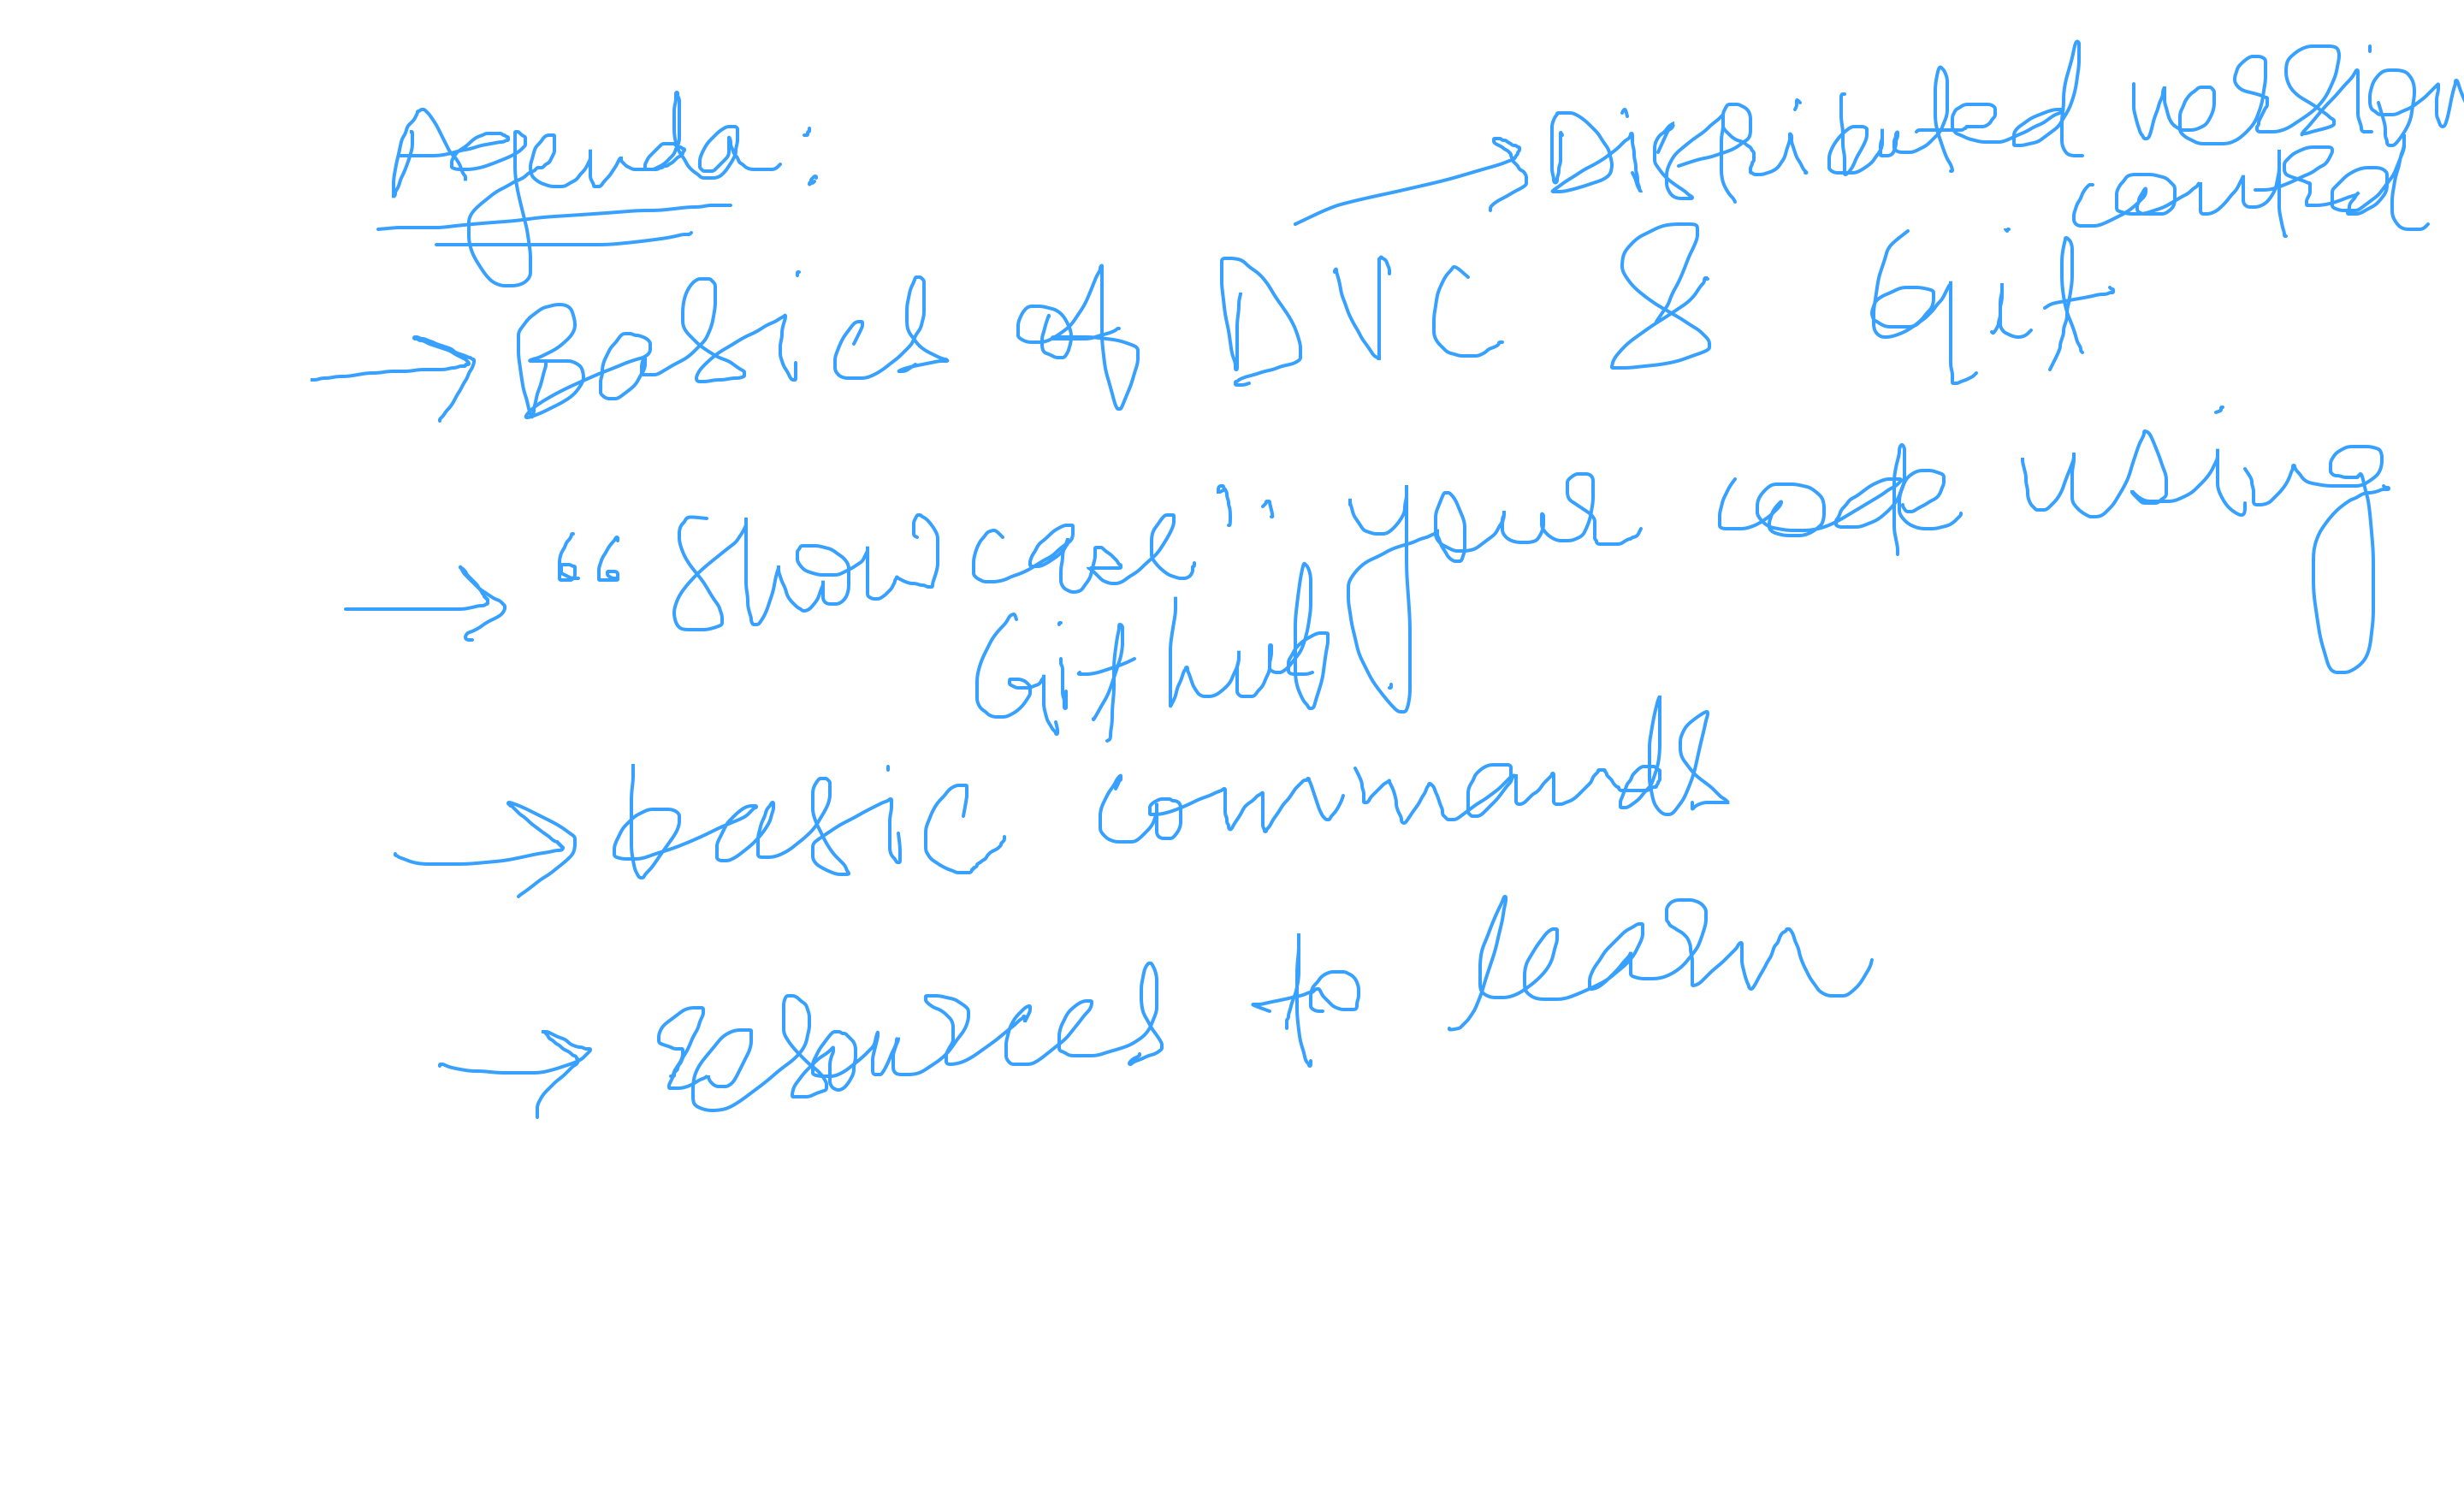 Agenda :
→ Distributed version control
→ Basics of DVC & Git
→ "Sharing" your code using
GitHub.
→ basic commands
→ Resources to learn